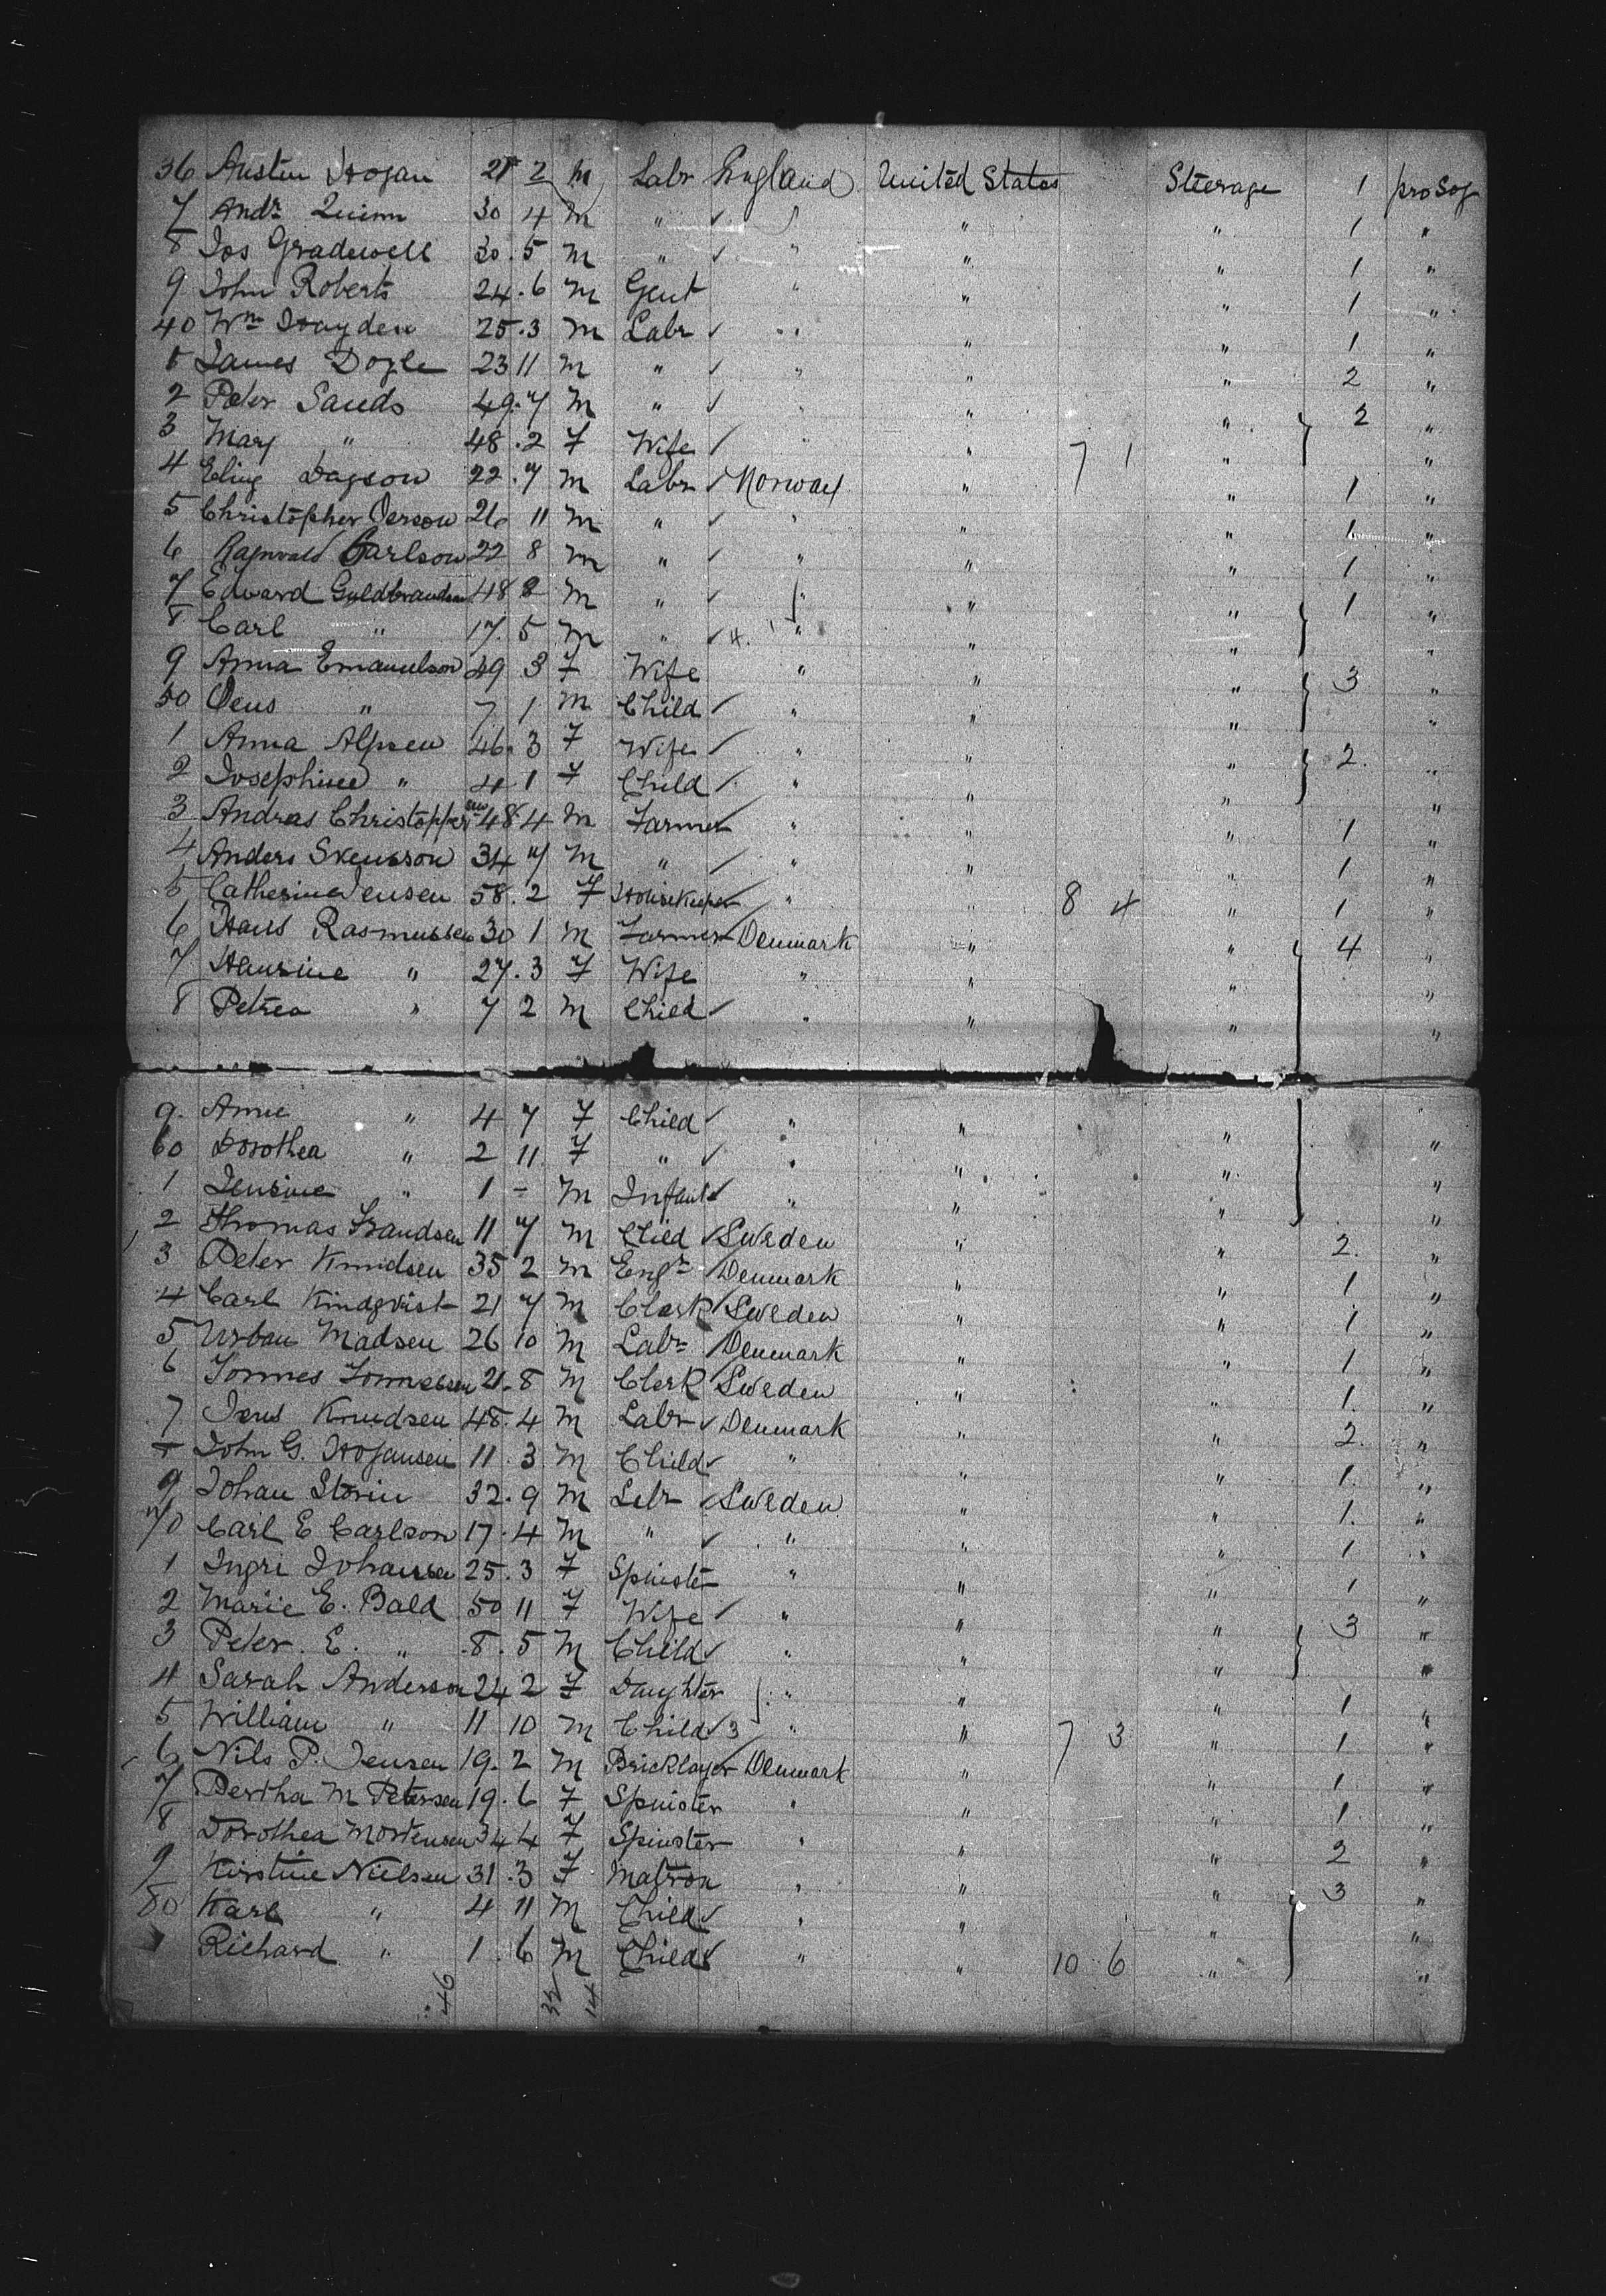 36 Austin Hogan 28 2 m Labr England United States Steerage 1 pro Soj
7 Andr Quinn 30 4 m " " " " 1 "
8 Jos Gradewell 30. 5 m " " " " 1 "
9 John Roberts 24. 6 m Gent " " " 1 "
40 Wm Hayden 25. 3 m Labr " " " 1 "
1 James Doyle 23 11 m " " " " 2 "
2 Peter Sands 49. 7 m " " " " 2 "
3 Mary " 48. 2 F Wife " " 7 1 " "
4 Eling Dagson 22. 7 m Labr Norway " " 1 "
5 Christopher Oerson 26 11 m " " " " 1 "
6 Ragnvald Carlson 22 8 m " " " " 1 "
7 Edward Guldbrandsen 48 8 m " " " " 1 "
8 Carl " 17. 5 m " 4. " " " "
9 Anna Emanuelson 49 3 F Wife " " " 3 "
50 Oens " 7 1 m Child " " " "
1 Anna Alpsen 46. 3 F Wife " " " 2. "
2 Josephine " 4. 1 F Child " " " "
3 Andras Christophersen 48 4 m Farmer " " " 1 "
4 Anders Skensson 34 7 m " " " " 1 "
5 Catherine Jensen 58. 2 F Housekeeper " " 8 4 " 1 "
6 Hans Rasmussen 30 1 m Farmer Denmark " " 4 "
7 Hansine " 27. 3 F Wife " " " "
8 Petrea " 7 2 m Child " " " "
9. Anne " 4 7 F Child " " " "
60 Dorothea " 2 11 F " " " " "
1 Jensine " 1 - m Infant " " " "
2 Thomas Frandsen 11 7 m Child Sweden " " 2. "
3 Peter Knudsen 35 2 m Engr Denmark " " 1 "
4 Carl Kindqvist 21 7 m Clerk Sweden " " 1 "
5 Urban Madsen 26 10 m Labr Denmark " " 1 "
6 21. 8 m Clerk Sweden " " 1. "
7 Jens Knudsen 48. 4 m Labr Denmark " " 2. "
8 John G. Hogansen 11. 3. m Child " " " 1. "
9 Johan Storin 32. 9 m Labr Sweden " " 1. "
70 Carl E Carlson 17. 4 m " " " " 1 "
1 Ingri Johansen 25. 3 F Spinster " " " 1 "
2 Marie E. Bald 50 11 F Wife " " " 3 "
3 Peter. E. " 8. 5 m Child " " " "
4 Sarah Anderson 24 2 F Daughter " " " 1 "
5 William " 11 10 m Child 3 " " 7 3 " 1 "
6 Nils P. Jensen 19. 2 m Bricklayer Denmark " " 1 "
7 Bertha M Petersen 19. 6 F Spinster " " " 1. "
8 Dorothea Mortensen 34 4 F Spinster " " " 2 "
9 Kirstine Nielsen 31. 3 F Matron " " " 3 "
80 Karl " 4 11 m Child " " " "
Richard " 1. 6 m Child " " 10 6 " "
46 32 14